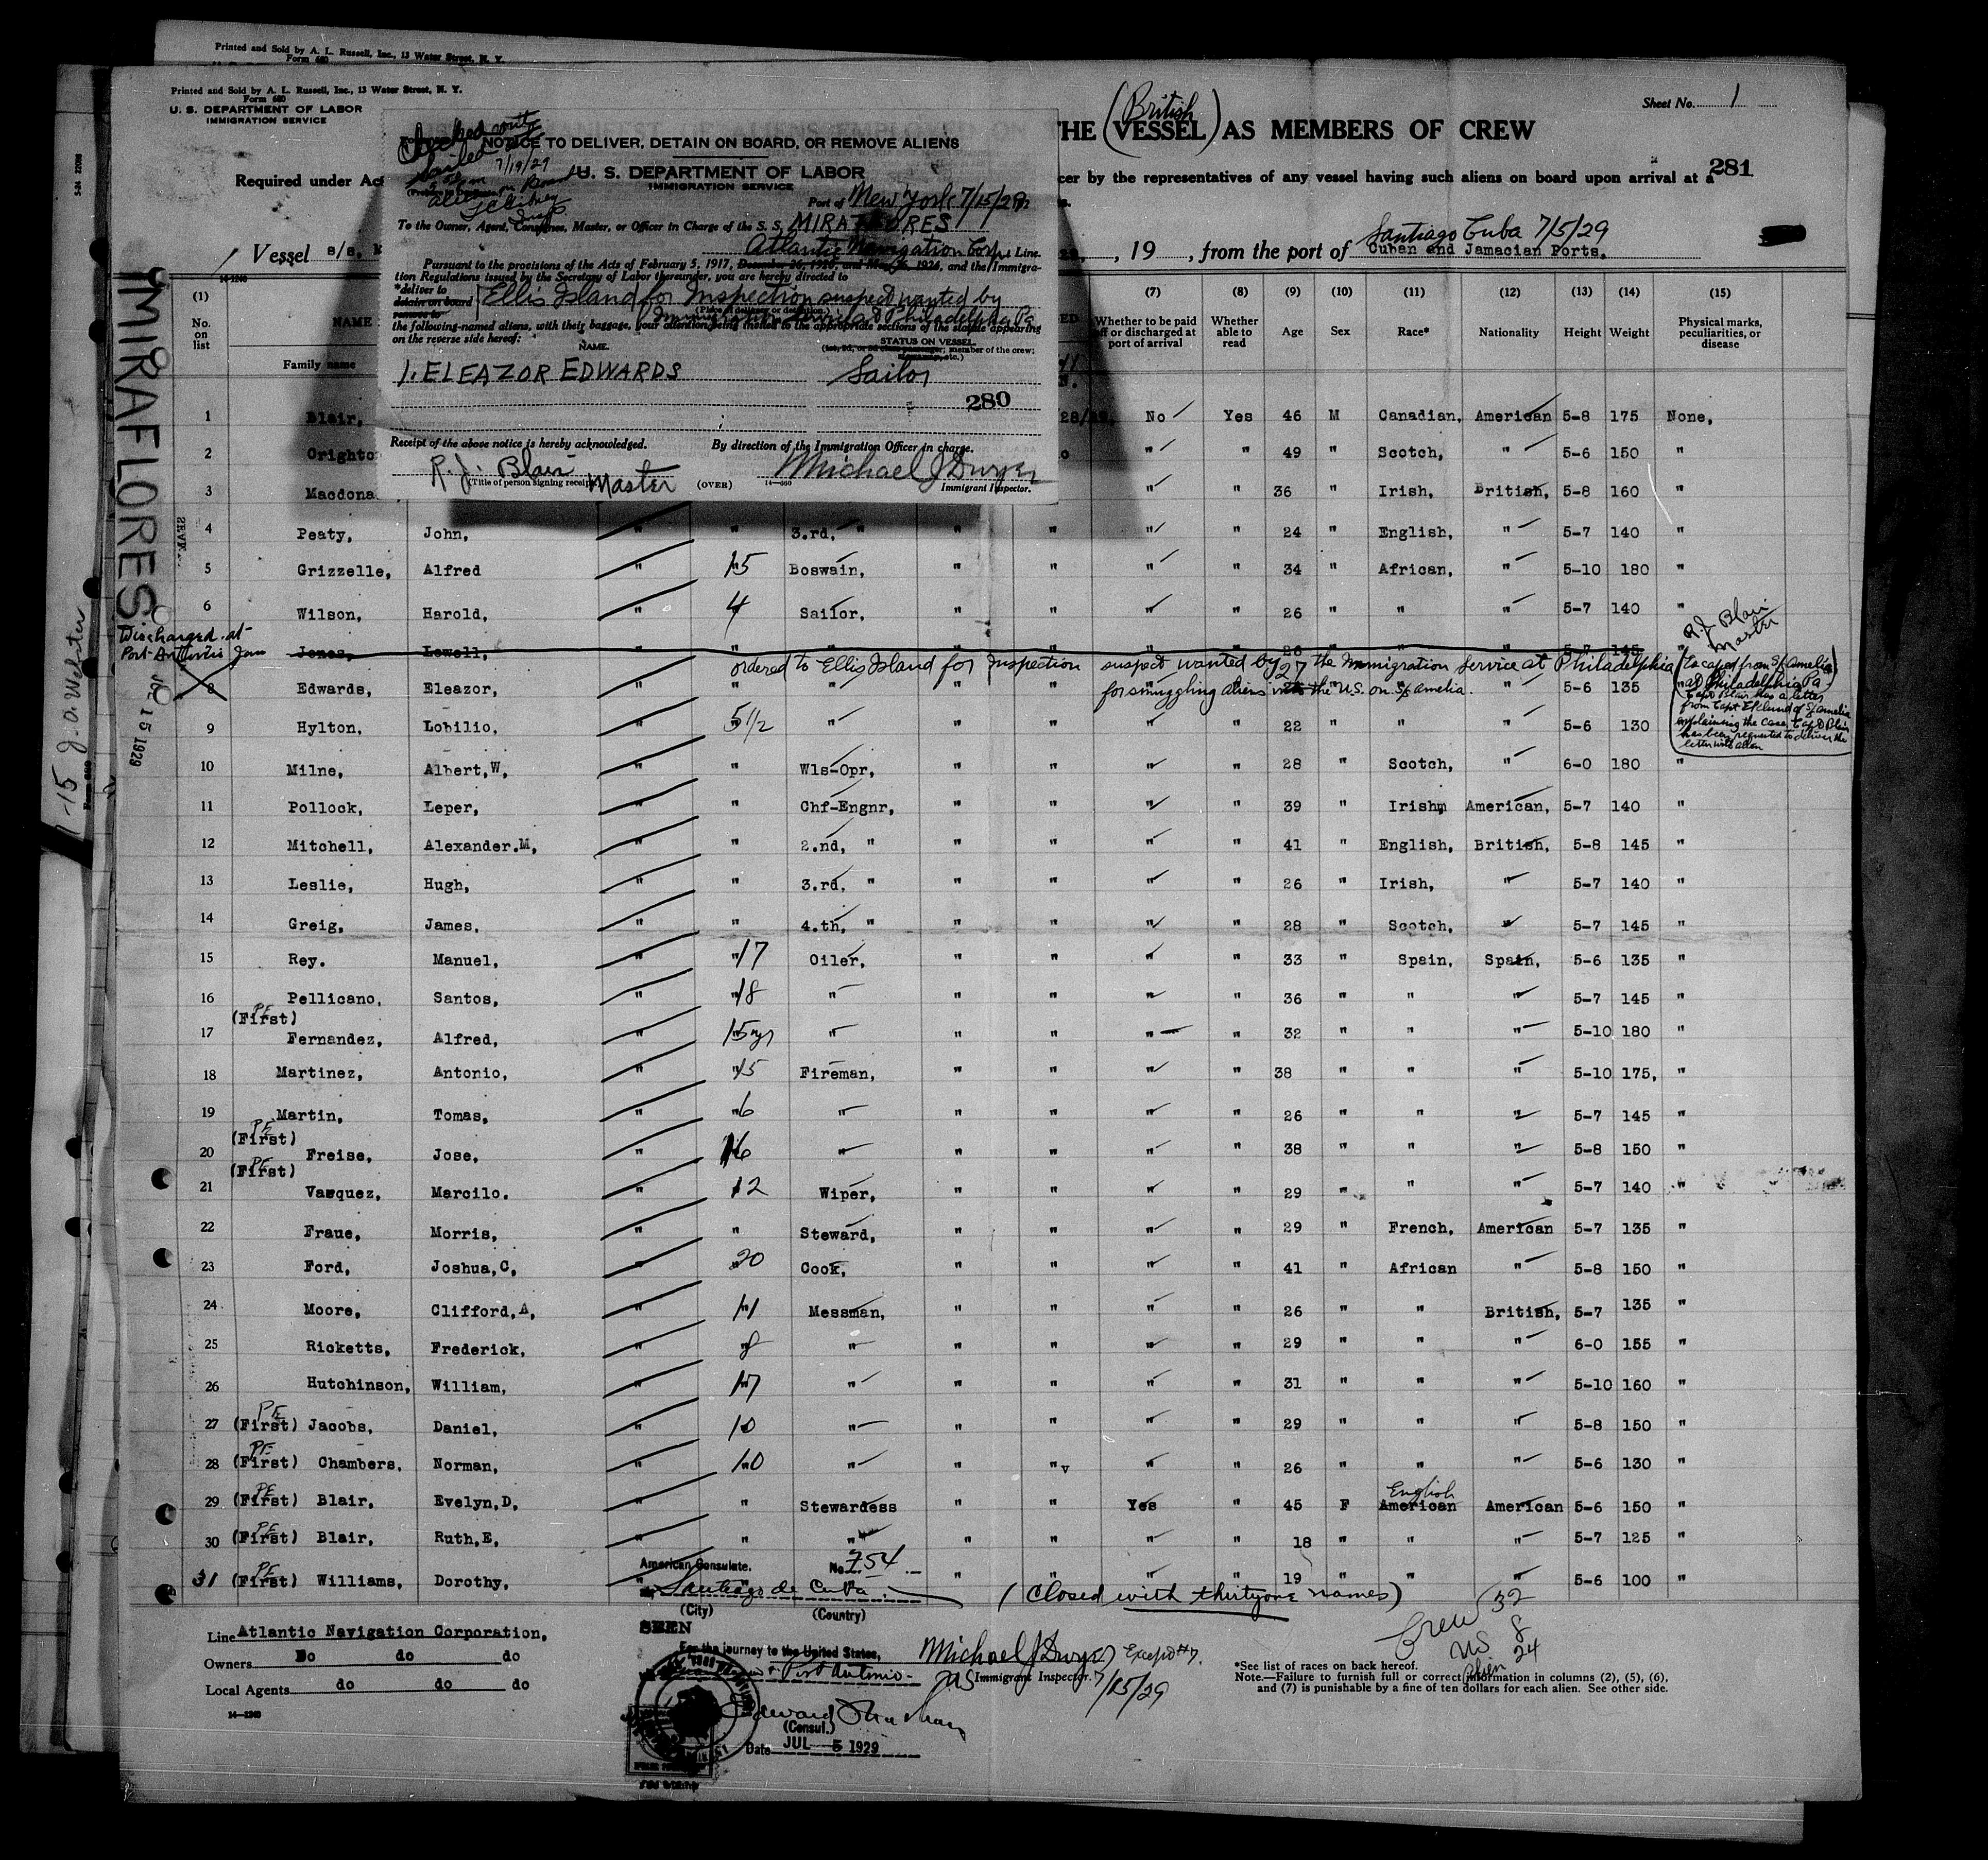 Printed and Sold by A. L. Russell, Inc., 13 Water Street, N. Y.
Form 680
Printed and Sold by A. L. Russell, Inc., 13 Water Street, N. Y.
Form 680
U. S. DEPARTMENT OF LABOR
IMMIGRATION SERVICE
Sheet No. 1
(British)
THE (VESSEL) AS MEMBERS OF CREW
281
Required under Act
cer by the representatives of any vessel having such aliens on board upon arrival at a
Vessel s/s,
, 19 , from the port of Santiago Cuba 7/5/29
Cuban and Jamacian Ports.
NOTICE TO DELIVER, DETAIN ON BOARD, OR REMOVE ALIENS
7/19/29
U. S. DEPARTMENT OF LABOR
IMMIGRATION SERVICE
Port of New York 7/15/29
To the Owner, Agent, Consignee, Master, or Officer in Charge of the S. S. MIRAFLORES
Atlantic Navigation Corp. Line.
Pursuant to the provisions of the Acts of February 5, 1917, December 26, 1920, and May 26, 1924, and the Immigra-
tion Regulations issued by the Secretary of Labor thereunder, you are hereby directed to
*deliver to
detain on board
remove to
Ellis Island for Inspection suspect wanted by
(Place of delivery or detention.)
Immigration Service at Philadelphia Pa
the following-named aliens, with their baggage, your attention being invited to the appropriate sections of the statute appearing
on the reverse side hereof:
NAME. STATUS ON VESSEL.
1. ELEAZOR EDWARDS Sailor
280
Receipt of the above notice is hereby acknowledged. By direction of the Immigration Officer in charge.
R. J. Blair Master Michael J Dwyer
(Title of person signing receipt) (OVER) 14—660 Immigrant Inspector.
14-1240
(1) (7) (8) (9) (10) (11) (12) (13) (14) (15)
No. on list
NAME
Family name
Whether to be paid off or discharged at port of arrival
Whether able to read
Age Sex Race* Nationality Height Weight
Physical marks, peculiarities, or disease
MIRAFLORES
JUL 15 1929
J. A. Webster
1 Blair, 28/ No Yes 46 M Canadian, American 5-8 175 None,
2 Crighto " " 49 " Scotch, " 5-6 150 "
3 Macdona " " 36 " Irish, British, 5-8 160 "
4 Peaty, John, " " 3.rd, " " " " " 24 " English, " 5-7 140 "
5 Grizzelle, Alfred " 15 Boswain, " " " " 34 " African, " 5-10 180 "
6 Wilson, Harold, " 4 Sailor, " " " " 26 " " " 5-7 140 "
R. J. Blair
Master
Discharged at
Port Antonio Jam
Jones, Lowell, " " " " " " " 26 " " " 5-7 145 "
ordered to Ellis Island for Inspection suspect wanted by the Immigration Service at Philadelphia
for smuggling aliens into the U.S. on S/S Amelia.
8 Edwards, Eleazor, " " " 27 " " " 5-6 135
(Escaped from S/S Amelia
at Philadelphia Pa)
Capt Blair has a letter
from Capt Eklund of S/S Amelia
explaining the case, Capt Blair
has been requested to deliver the
letter with alien
9 Hylton, Lobilio, " 5 1/2 " " " " " 22 " " " 5-6 130
10 Milne, Albert,W, " " Wls-Opr, " " " " 28 " Scotch, " 6-0 180 "
11 Pollock, Leper, " " Chf-Engnr, " " " " 39 " Irish, American, 5-7 140 "
12 Mitchell, Alexander.M, " " 2.nd, " " " " " 41 " English, British, 5-8 145 "
13 Leslie, Hugh, " " 3.rd, " " " " " 26 " Irish, " 5-7 140 "
14 Greig, James, " " 4.th, " " " " " 28 " Scotch, " 5-7 145 "
15 Rey. Manuel, " 17 Oiler, " " " " 33 " Spain, Spain, 5-6 135 "
16 Pellicano, Santos, " 18 " " " " " 36 " " " 5-7 145 "
17 (First) PE Fernandez, Alfred, " 15 yrs " " " " " 32 " " " 5-10 180 "
18 Martinez, Antonio, " 15 Fireman, " " " " 38 " " " 5-10 175, "
19 Martin, Tomas, " 6 " " " " " 26 " " " 5-7 145 "
20 (First) PE Freise, Jose, " 16 " " " " " 38 " " " 5-8 150 "
21 (First) PE Vasquez, Marcilo. " 12 Wiper, " " " " 29 " " " 5-7 140 "
22 Fraue, Morris, " " Steward, " " " " 29 " French, American 5-7 135 "
23 Ford, Joshua,C, " 20 Cook, " " " " 41 " African " 5-8 150 "
24 Moore, Clifford,A, " 11 Messman, " " " " 26 " " British, 5-7 135 "
25 Ricketts, Frederick, " 8 " " " " " 29 " " " 6-0 155 "
26 Hutchinson, William, " 17 " " " " " 31 " " " 5-10 160 "
27 (First) PE Jacobs, Daniel, " 10 " " " " " 29 " " " 5-8 150 "
28 (First) PE Chambers, Norman, " 10 " " " " " 26 " " " 5-6 130 "
29 (First) PE Blair, Evelyn,D, " " Stewardess " " Yes " 45 F English American American 5-6 150 "
30 (First) PE Blair, Ruth,E, " " " " " " " 18 " " " 5-7 125 "
31 (First) PE Williams, Dorothy, " " " " " " " 19 " " " 5-6 100 "
American Consulate. No. 754
Santiago de Cuba
(City) (Country)
(Closed with thirtyone names)
SEEN
For the journey to the United States,
Port Antonio
Michael J Dwyer Except #7.
Immigrant Inspector. 7/15/29
Crew 32
US 8
Alien 24
(Consul.)
Date JUL 5 1929
Line Atlantic Navigation Corporation,
Owners Do do do
Local Agents do do do
14—1240
*See list of races on back hereof.
Note.—Failure to furnish full or correct information in columns (2), (5), (6),
and (7) is punishable by a fine of ten dollars for each alien. See other side.